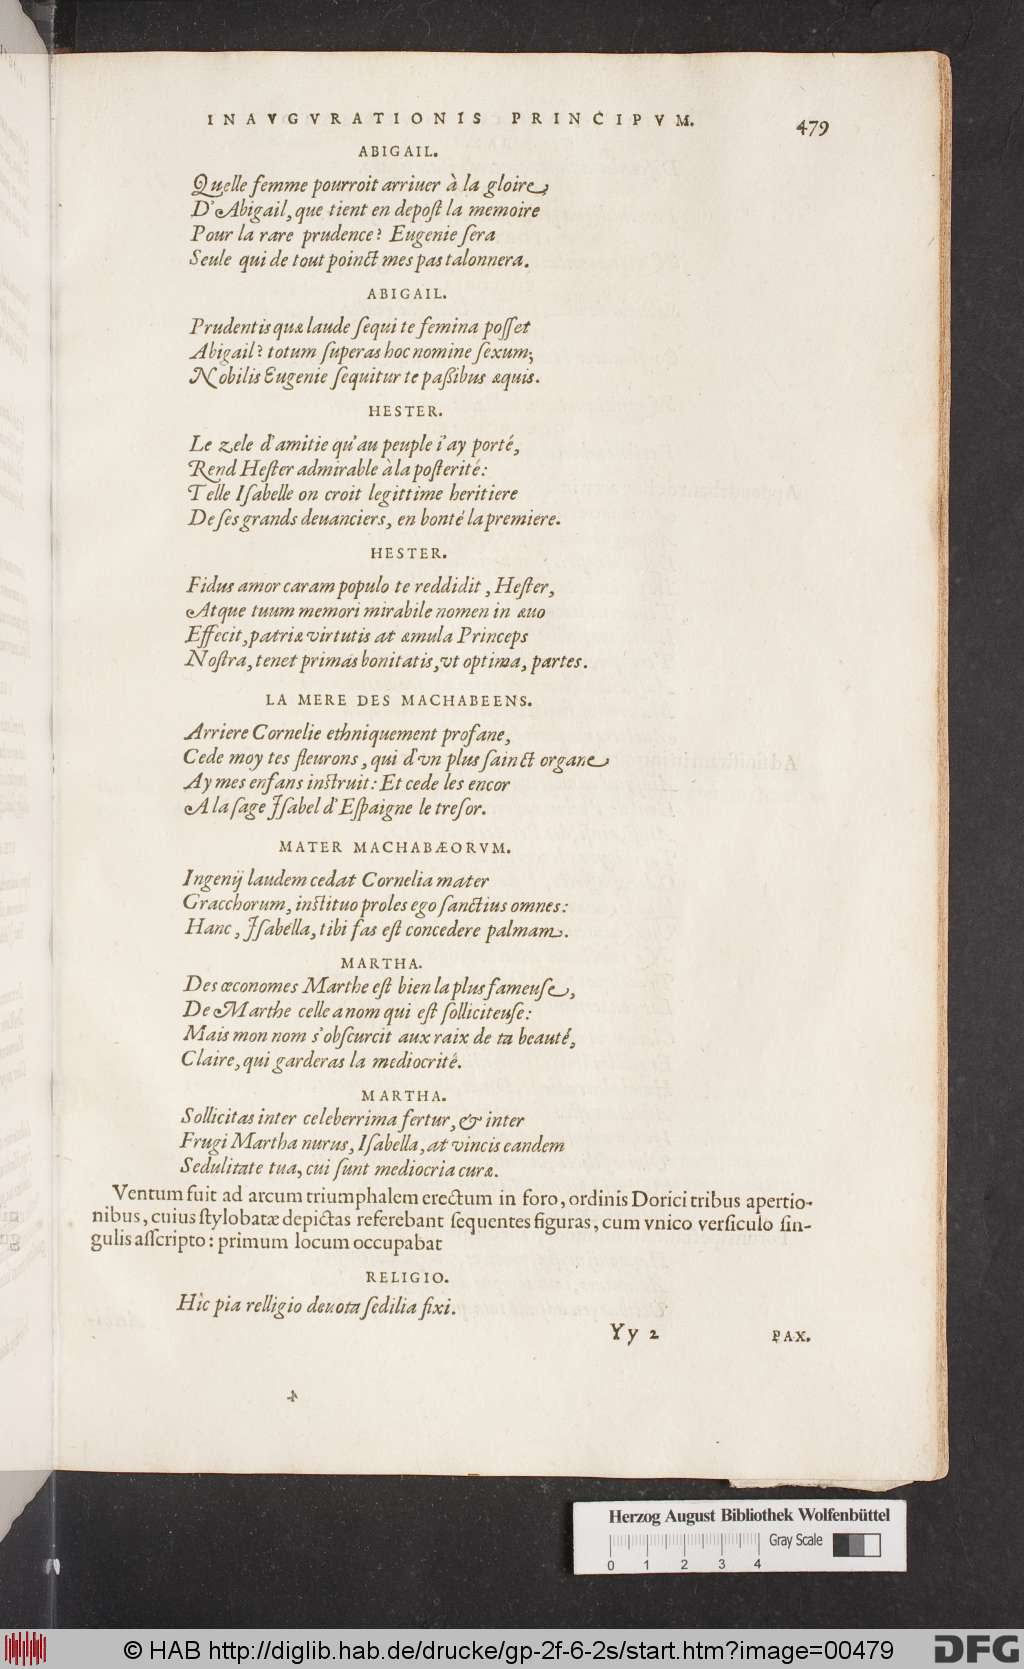 INAVGVRATIONIS PRINCIPVM. 479
ABIGAIL.
Quelle femme pourroit arriuer à la gloire,
D'Abigail, que tient en depoſt la memoire
Pour la rare prudence? Eugenie ſera
Seule qui de tout poinct mes pas talonnera.
ABIGAIL.
Prudentis quæ laude ſequi te femina poſſet
Abigail? totum ſuperas hoc nomine ſexum;
Nobilis Eugenie ſequitur te paßibus æquis.
HESTER.
Le zele d'amitie qu'au peuple i'ay porté,
Rend Heſter admirable à la poſterité:
Telle Iſabelle on croit legittime heritiere
De ſes grands deuanciers, en bonté la premiere.
HESTER.
Fidus amor caram populo te reddidit, Heſter,
Atque tuum memori mirabile nomen in æuo
Effecit, patriæ virtutis at æmula Princeps
Noſtra, tenet primas bonitatis, vt optima, partes.
LA MERE DES MACHABEENS.
Arriere Cornelie ethniquement profane,
Cede moy tes fleurons, qui d'vn plus ſainct organe
Ay mes enfans inſtruit: Et cede les encor
A la ſage Iſabel d'Eſpaigne le treſor.
MATER MACHABÆORVM.
Ingenij laudem cedat Cornelia mater
Gracchorum, inſtituo proles ego ſanctius omnes:
Hanc, Iſabella, tibi fas eſt concedere palmam.
MARTHA.
Des œconomes Marthe eſt bien la plus fameuſe,
De Marthe celle a nom qui eſt ſolliciteuſe:
Mais mon nom s'obſcurcit aux raix de ta beauté,
Claire, qui garderas la mediocrité.
MARTHA.
Sollicitas inter celeberrima fertur, & inter
Frugi Martha nurus, Iſabella, at vincis eandem
Sedulitate tua, cui ſunt mediocria curæ.
Ventum fuit ad arcum triumphalem erectum in foro, ordinis Dorici tribus apertio-
nibus, cuius ſtylobatæ depictas referebant ſequentes figuras, cum vnico verſiculo ſin-
gulis aſſcripto: primum locum occupabat
RELIGIO.
Hic pia relligio deuota ſedilia fixi.
Yy 2 PAX.
Herzog August Bibliothek Wolfenbüttel
Gray Scale
0 1 2 3 4
© HAB http://diglib.hab.de/drucke/gp-2f-6-2s/start.htm?image=00479
DFG